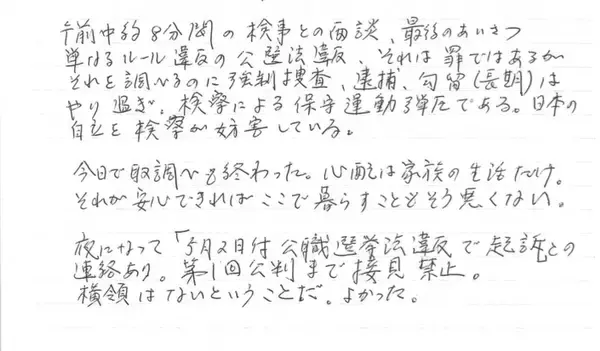 午前中約8分間の検事との面談、最後のあいさつ
単なるルール違反の公選法違反、それは罪ではあるが
それを調べるのに強制捜査、逮捕、勾留(長期)は
やり過ぎ。検察による保守運動弾圧である。日本の
自立を検察が妨害している。
今日で取調べも終わった。心配は家族の生活だけ。
それが安心できればここで暮らすこともそう悪くない。
夜になって「5月2日付 公職選挙法違反で起訴との
連絡あり。第1回公判まで接見禁止。
横領はないということだ。よかった。